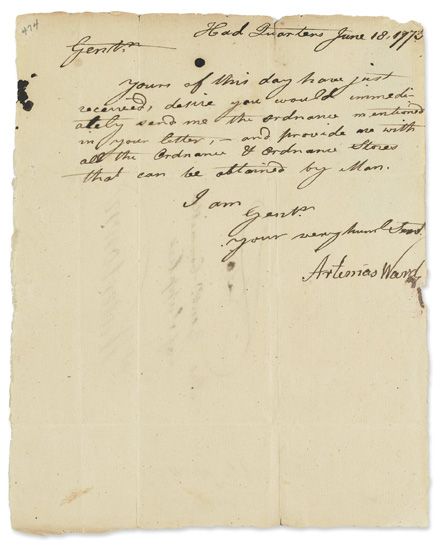 474
Head Quarters June 18. 1775
Gentn
Yours of this day have just
received, desire you would immedi-
ately send me the ordnance mentioned
in your letter, – and provide me with
all the Ordnance & Ordnance Stores
that can be obtained by Man.
I am
Gentn
your very huml Servt
Artemas Ward